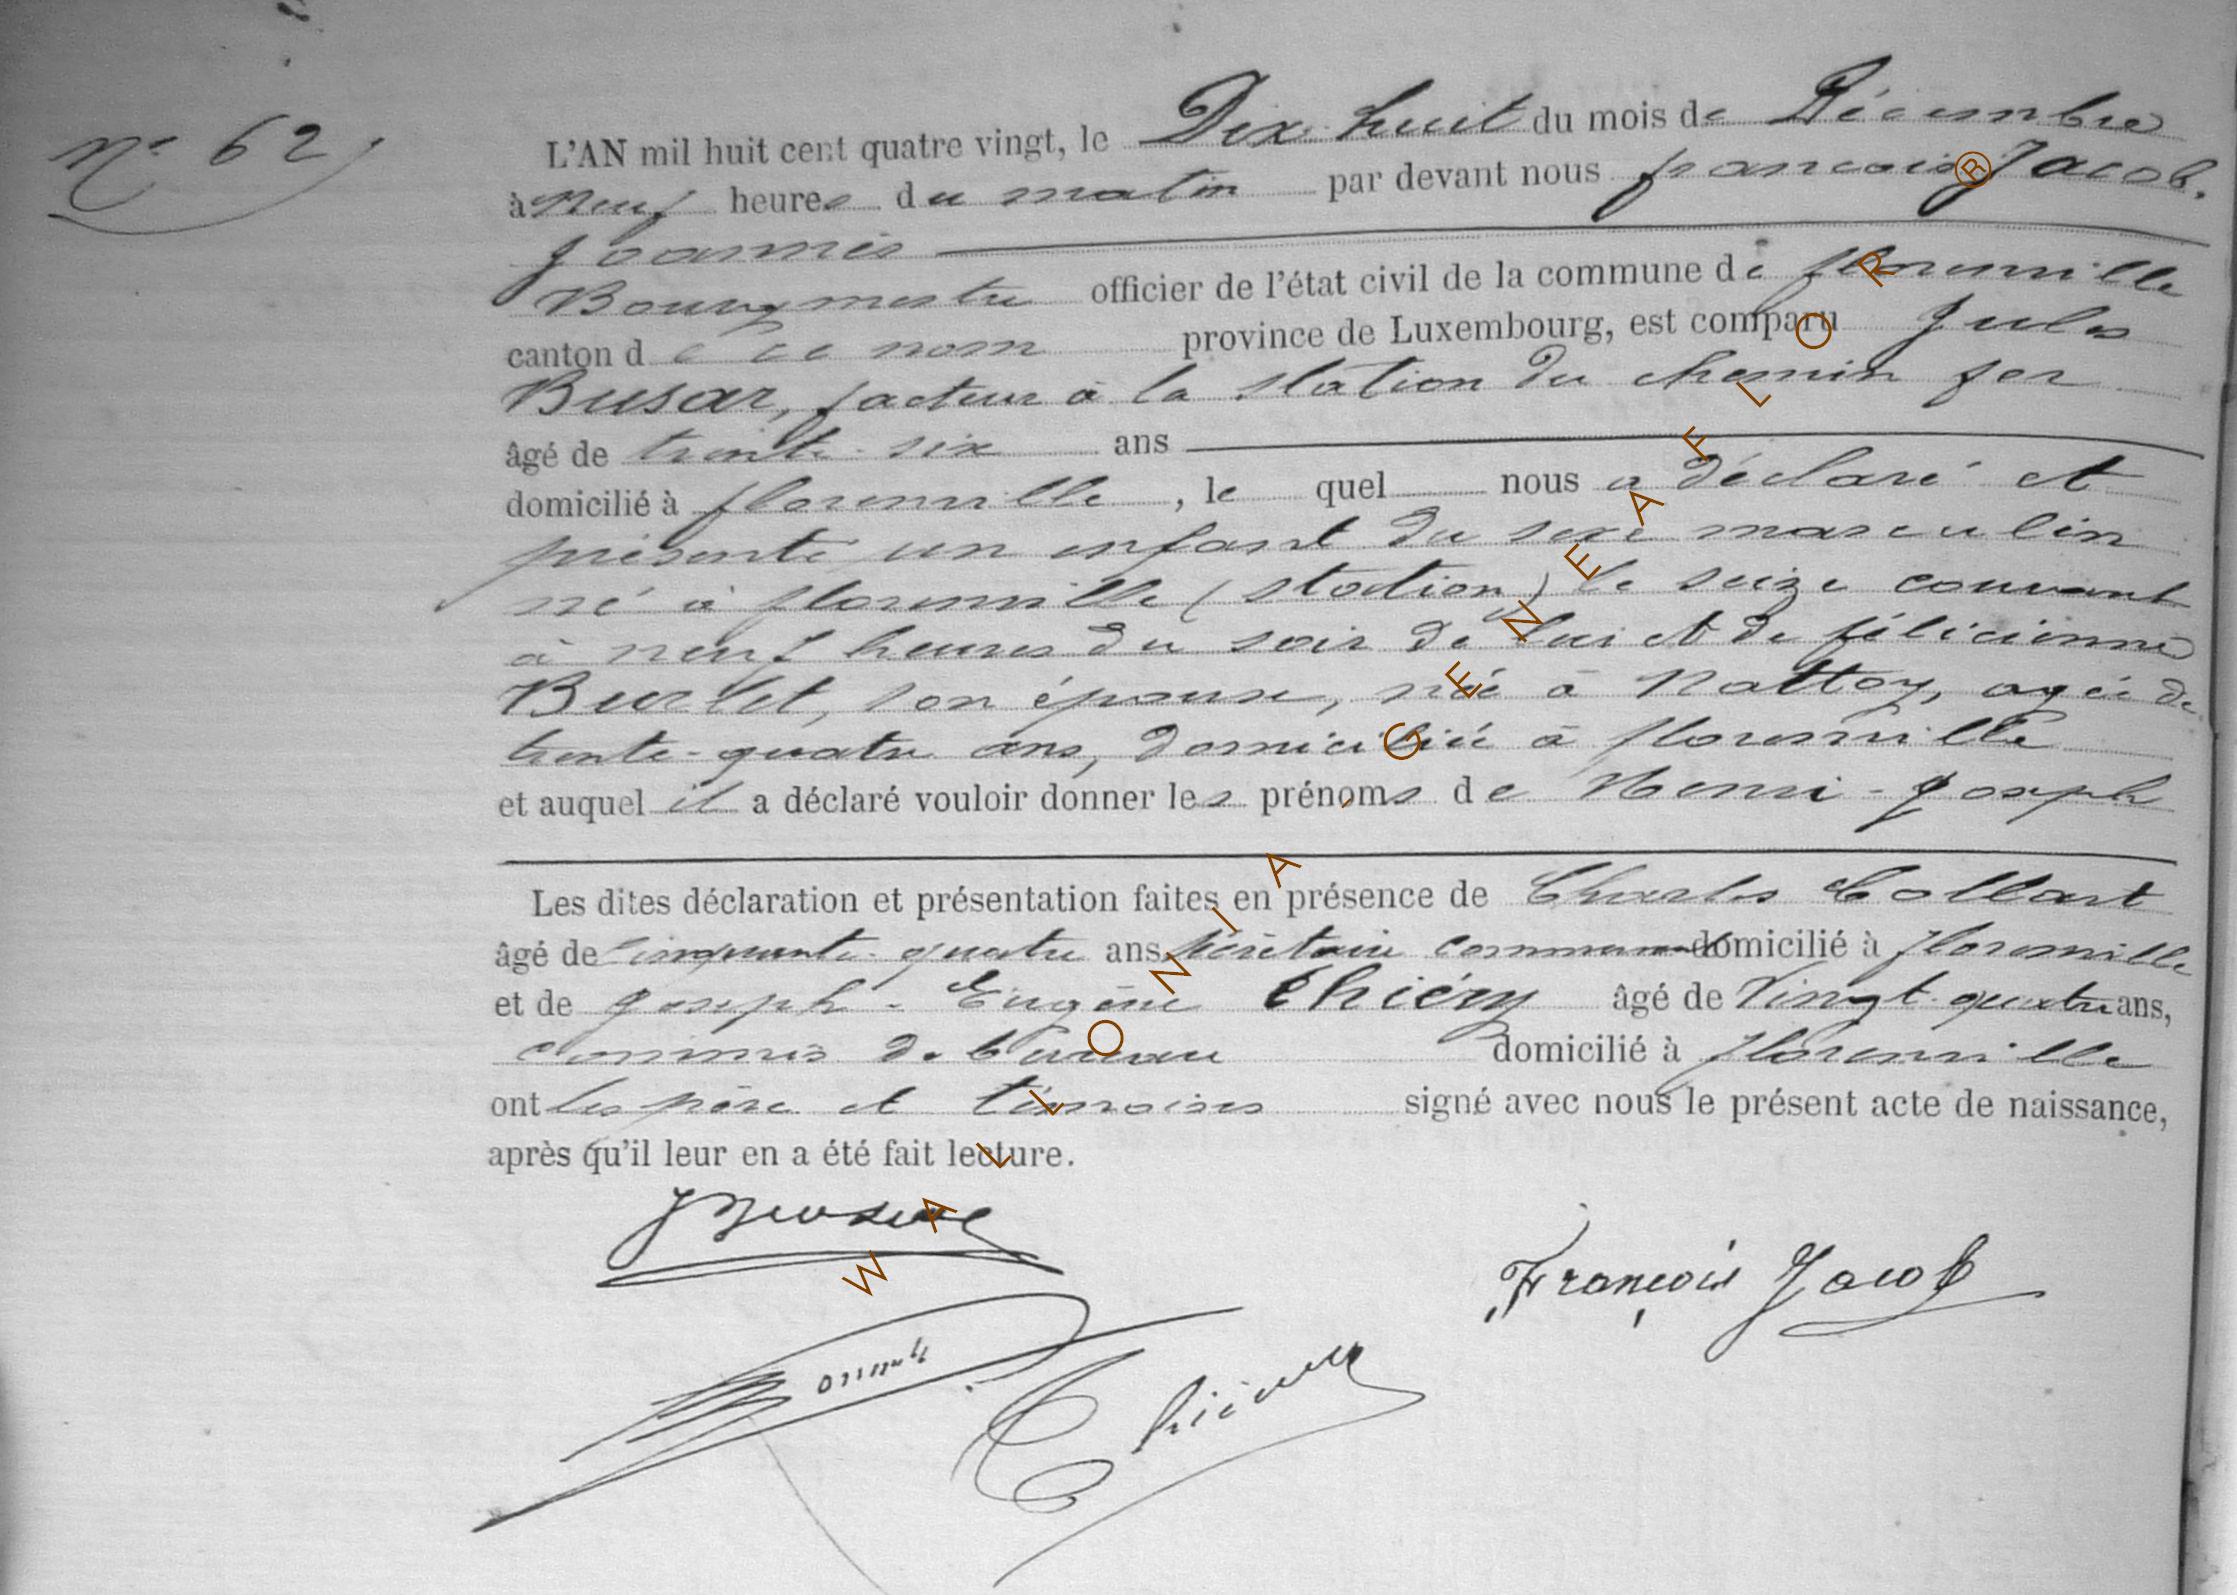 N° 62
L'AN mil huit cent quatre vingt, le Dix-huit du mois de Décembre
à Neuf heures du matin par devant nous francois Jacob.
Joannes
Bourgmestre officier de l'état civil de la commune de florenville
canton de ce nom province de Luxembourg, est comparu Jules
Busar, facteur à la station du chemin fer
âgé de trente-six ans
domicilié à florenville, le quel nous a déclaré et
présenté un enfant du sexe masculin
né à florenville (station) le seize courant
à neuf heures du soir de lui et de félicienne
Burlet, son épouse, née à Nattoy, agée de
trente-quatre ans, domiciliée à florenville
et auquel il a déclaré vouloir donner les prénoms de Henri-Joseph
Les dites déclaration et présentation faites en présence de Charles Collart
âgé de Cinquante-quatre ans, secrétaire communal domicilié à florenville
et de Joseph-Eugène Thiéry âgé de Vingt-quatre ans,
commis de bureau domicilié à florenville
ont les père et témoins signé avec nous le présent acte de naissance,
après qu'il leur en a été fait lecture.
JBusar
François Jacob
Thiéry
WALLONIA GENEAFLOR®